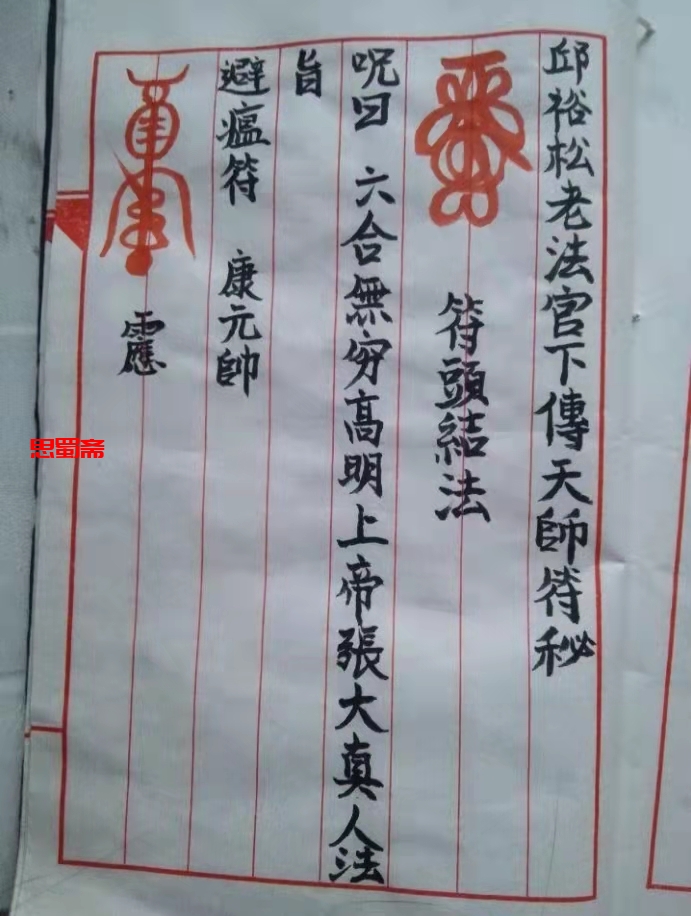 邱裕松老法官下傳天師符秘
符頭結法
咒曰 六合無穷高明上帝張大真人法
旨
避瘟符 康元帥
靈
思蜀斋